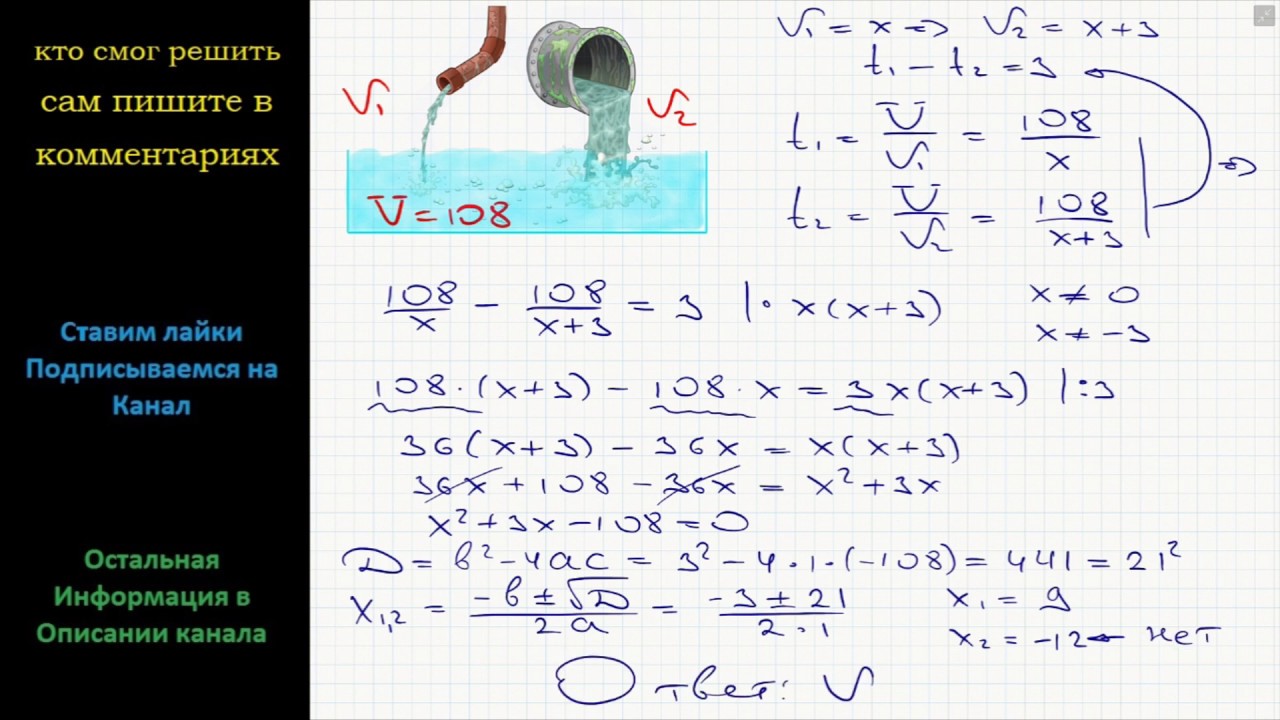 кто смог решить
сам пишите в
комментариях
Ставим лайки
Подписываемся на
Канал
Остальная
Информация в
Описании канала
V₁
V₂
V = 108
V₁ = x => V₂ = x+3
t₁ - t₂ = 3
t₁ = V/V₁ = 108/x
=>
t₂ = V/V₂ = 108/(x+3)
108/x - 108/(x+3) = 3 |· x(x+3)
x ≠ 0
x ≠ -3
108·(x+3) - 108·x = 3x(x+3) |:3
36(x+3) - 36x = x(x+3)
36x + 108 - 36x = x² + 3x
x² + 3x - 108 = 0
D = b² - 4ac = 3² - 4·1·(-108) = 441 = 21²
x₁,₂ = (-b ± √D)/2a = (-3 ± 21)/2·1
x₁ = 9
x₂ = -12 ← нет
Ответ: V